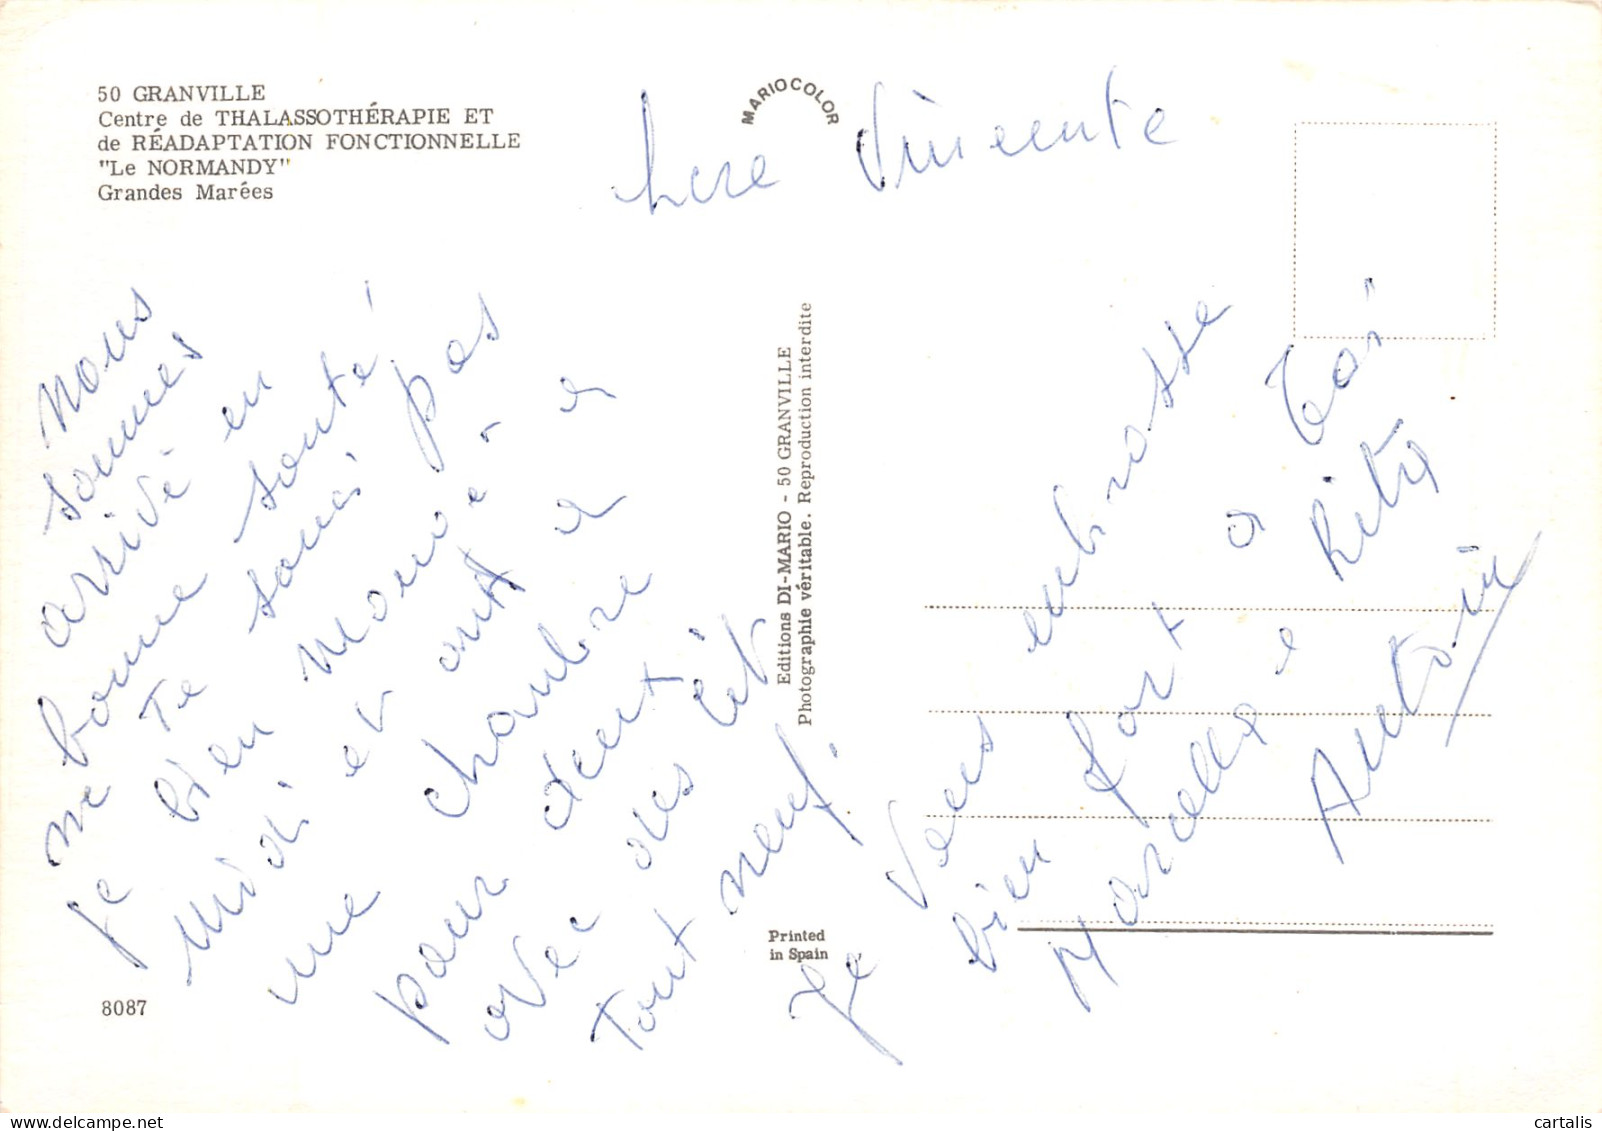 50 GRANVILLE
Centre de THALASSOTHÉRAPIE ET
de RÉADAPTATION FONCTIONNELLE
"Le NORMANDY"
Grandes Marées
MARIOCOLOR
here Vincente
nous
sommes
arrivé en
bonne santé
ne Te souci pas
je bien mangé a
Midi et ont a
une chambre a
pour deux
avec des lit
Tout neuf.
Je Vous embrasse
bien fort a Toi
Marcelle e Rita
Antoin
Editions DI-MARIO - 50 GRANVILLE
Photographie véritable. Reproduction interdite
Printed
in Spain
8087
cartalis